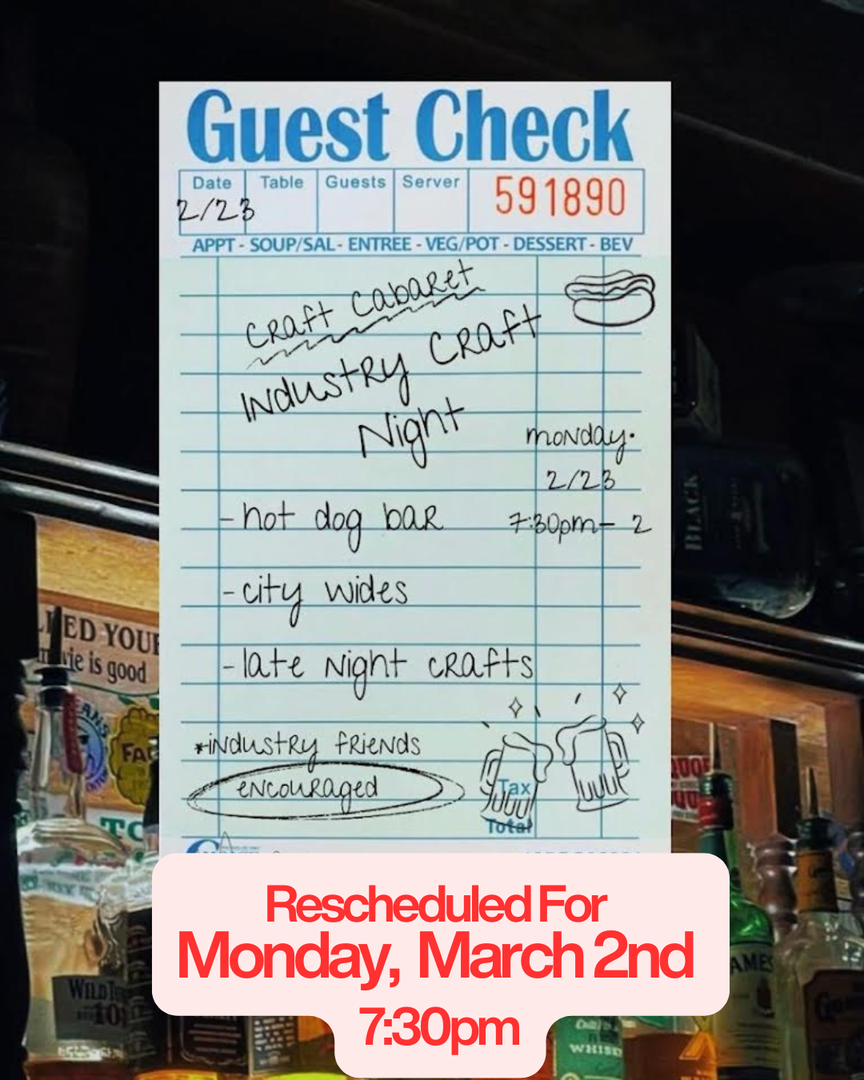 Guest Check
Date Table Guests Server 591890
2/23
APPT - SOUP/SAL - ENTREE - VEG/POT - DESSERT - BEV
Craft Cabaret
Industry Craft
Night
monday.
2/23
7:30pm - 2
- hot dog bar
- city wides
- late night crafts
*industry friends
encouraged
Tax
Total
Rescheduled For
Monday, March 2nd
7:30pm
YOUR
is good
BLACK
WILD
10
WHISK